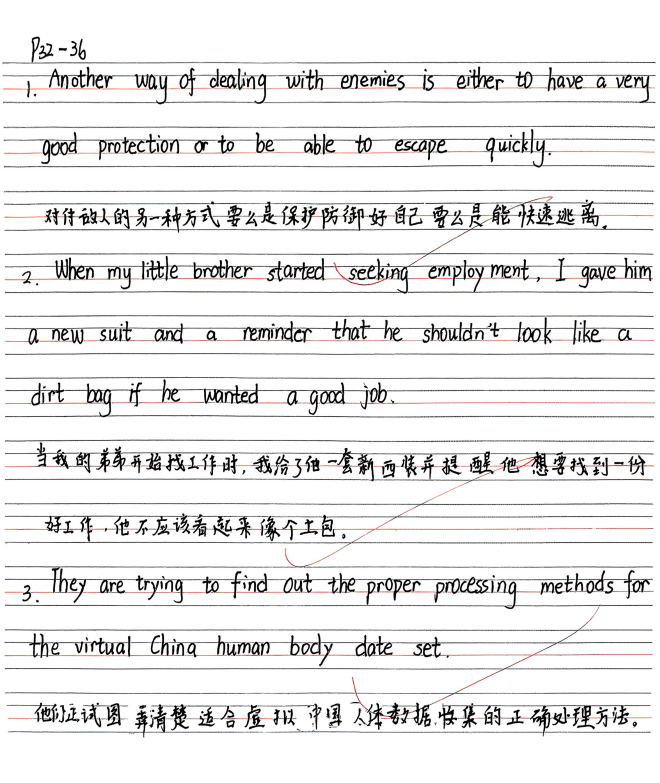 P32-36
1. Another way of dealing with enemies is either to have a very
good protection or to be able to escape quickly.
对付敌人的另一种方式要么是保护防御好自己要么是能快速逃离。
2. When my little brother started seeking employment, I gave him
a new suit and a reminder that he shouldn't look like a
dirt bag if he wanted a good job.
当我的弟弟开始找工作时,我给了他一套新西装并提醒他想要找到一份
好工作,他不应该看起来像个土包。
3. They are trying to find out the proper processing methods for
the virtual China human body date set.
他们正试图弄清楚适合虚拟中国人体数据收集的正确处理方法。